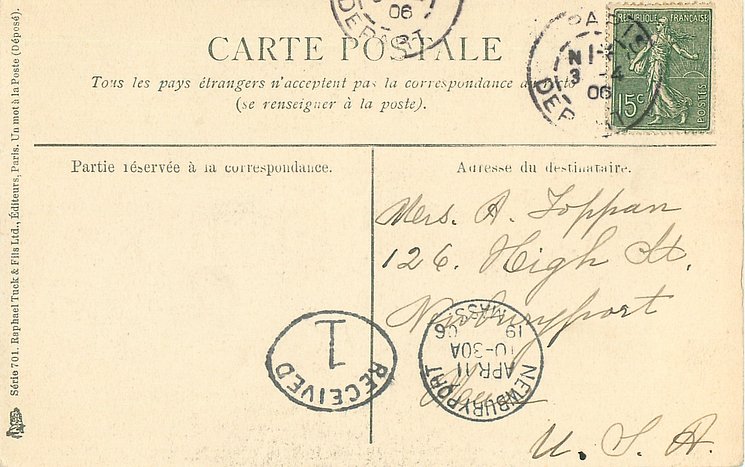 06
DEPART
CARTE POSTALE
Tous les pays étrangers n'acceptent pas la correspondance au
(se renseigner à la poste).
PARIS
3 - 4
06
DEPART
REPUBLIQUE FRANÇAISE
15c
POSTES
Partie réservée à la correspondance.
Adresse du destinataire.
Mrs. A. Toppan
126. High St.
Newburyport
Mass
U. S. A.
NEWBURYPORT
APR 11
10-30A
1906
MASS.
RECEIVED
1
Série 701. Raphael Tuck & Fils Ltd., Éditeurs, Paris. Un mot à la Poste (Déposé).